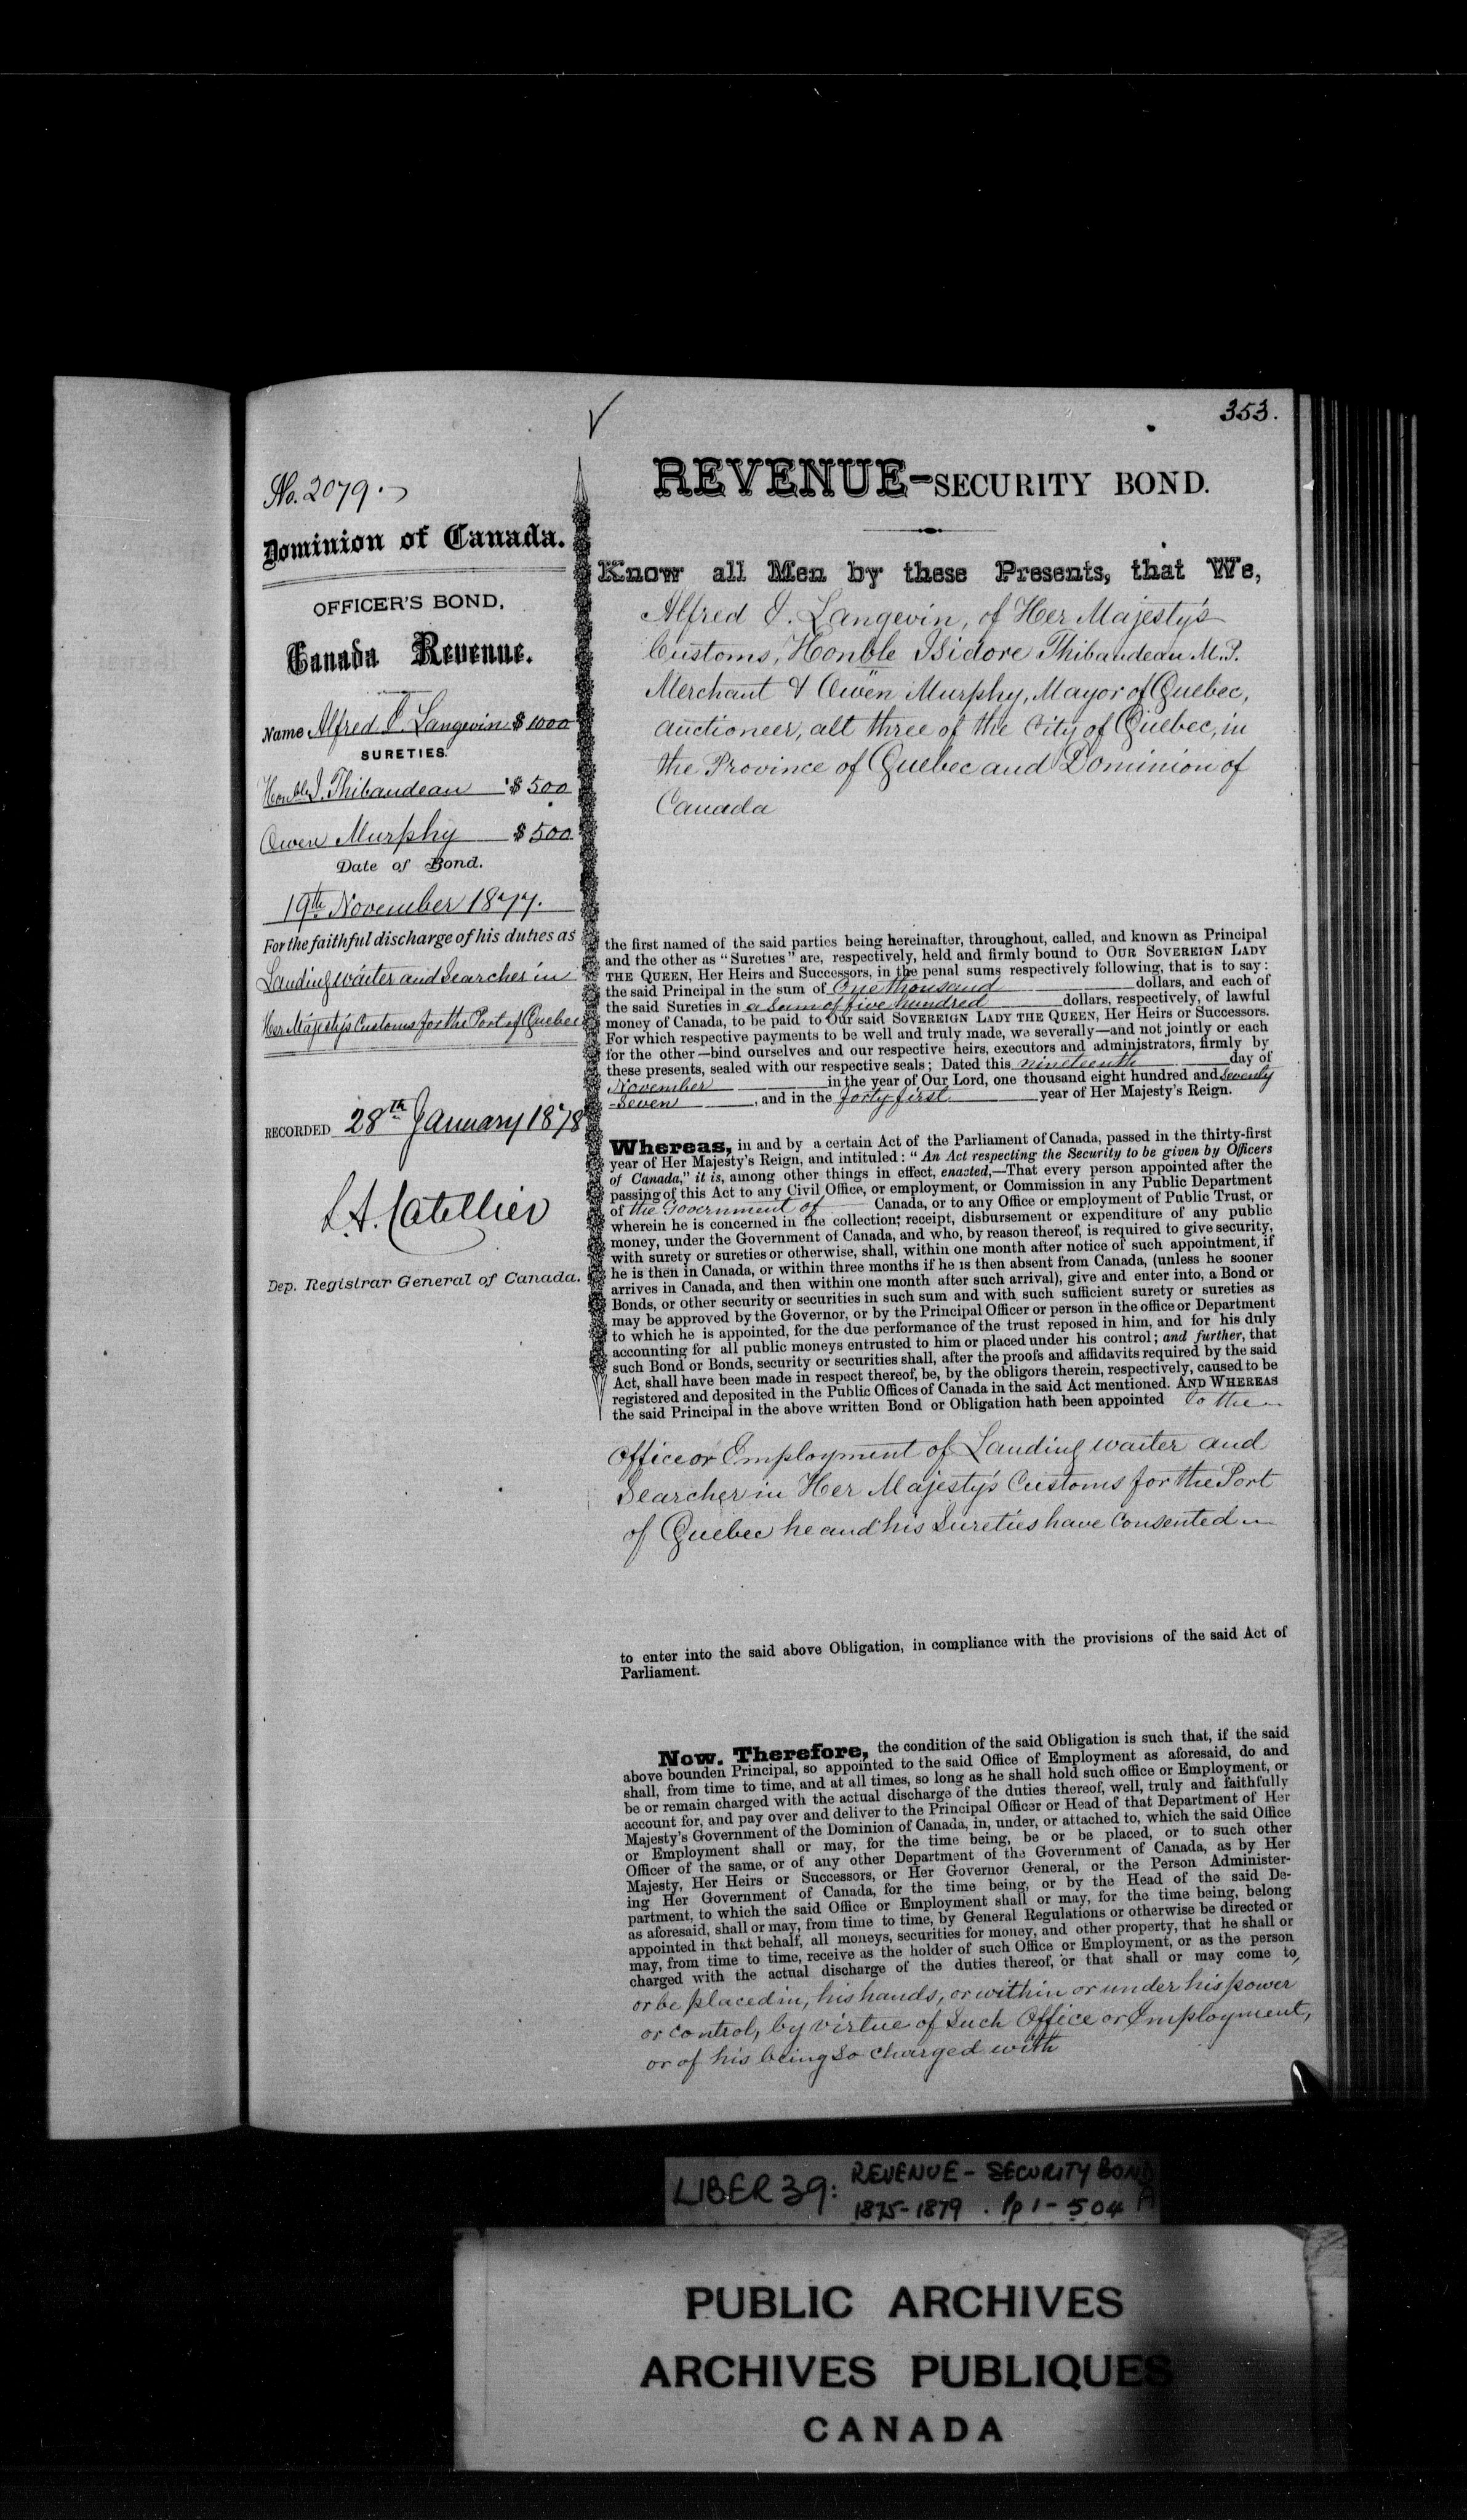 353.
No. 2079.
Dominion of Canada.
OFFICER'S BOND.
Canada Revenue.
Name Alfred E. Langevin $ 1000
SURETIES.
Honble I. Thibaudeau $ 500
Owen Murphy $ 500
Date of Bond.
19th November 1877.
For the faithful discharge of his duties as
Landing waiter and Searcher in
Her Majesty's Customs for the Port of Quebec
RECORDED 28th January 1878
L. A. Catellier
Dep. Registrar General of Canada.
REVENUE-SECURITY BOND.
Know all Men by these Presents, that We,
Alfred E. Langevin, of Her Majesty's
Customs, Honble Isidore Thibaudeau M.P.
Merchant & Owen Murphy, Mayor of Quebec,
Auctioneer, all three of the City of Quebec, in
the Province of Quebec and Dominion of
Canada
the first named of the said parties being hereinafter, throughout, called, and known as Principal
and the other as "Sureties" are, respectively, held and firmly bound to OUR SOVEREIGN LADY
THE QUEEN, Her Heirs and Successors, in the penal sums respectively following, that is to say:
the said Principal in the sum of One thousand dollars, and each of
the said Sureties in a Sum of five hundred dollars, respectively, of lawful
money of Canada, to be paid to Our said SOVEREIGN LADY THE QUEEN, Her Heirs or Successors.
For which respective payments to be well and truly made, we severally—and not jointly or each
for the other—bind ourselves and our respective heirs, executors and administrators, firmly by
these presents, sealed with our respective seals; Dated this nineteenth day of
November in the year of Our Lord, one thousand eight hundred and Seventy
-Seven , and in the forty first year of Her Majesty's Reign.
Whereas, in and by a certain Act of the Parliament of Canada, passed in the thirty-first
year of Her Majesty's Reign, and intituled: "An Act respecting the Security to be given by Officers
of Canada," it is, among other things in effect, enacted,—That every person appointed after the
passing of this Act to any Civil Office, or employment, or Commission in any Public Department
of the Government of Canada, or to any Office or employment of Public Trust, or
wherein he is concerned in the collection, receipt, disbursement or expenditure of any public
money, under the Government of Canada, and who, by reason thereof, is required to give security,
with surety or sureties or otherwise, shall, within one month after notice of such appointment, if
he is then in Canada, or within three months if he is then absent from Canada, (unless he sooner
arrives in Canada, and then within one month after such arrival), give and enter into, a Bond or
Bonds, or other security or securities in such sum and with such sufficient surety or sureties as
may be approved by the Governor, or by the Principal Officer or person in the office or Department
to which he is appointed, for the due performance of the trust reposed in him, and for his duly
accounting for all public moneys entrusted to him or placed under his control; and further, that
such Bond or Bonds, security or securities shall, after the proofs and affidavits required by the said
Act, shall have been made in respect thereof, be, by the obligors therein, respectively, caused to be
registered and deposited in the Public Offices of Canada in the said Act mentioned. AND WHEREAS
the said Principal in the above written Bond or Obligation hath been appointed to the
Office or Employment of Landing waiter and
Searcher in Her Majesty's Customs for the Port
of Quebec he and his Sureties have Consented
to enter into the said above Obligation, in compliance with the provisions of the said Act of
Parliament.
Now. Therefore, the condition of the said Obligation is such that, if the said
above bounden Principal, so appointed to the said Office of Employment as aforesaid, do and
shall, from time to time, and at all times, so long as he shall hold such office or Employment, or
be or remain charged with the actual discharge of the duties thereof, well, truly and faithfully
account for, and pay over and deliver to the Principal Officer or Head of that Department of Her
Majesty's Government of the Dominion of Canada, in, under, or attached to, which the said Office
or Employment shall or may, for the time being, be or be placed, or to such other
Officer of the same, or of any other Department of the Government of Canada, as by Her
Majesty, Her Heirs or Successors, or Her Governor General, or the Person Administer-
ing Her Government of Canada, for the time being, or by the Head of the said De-
partment, to which the said Office or Employment shall or may, for the time being, belong
as aforesaid, shall or may, from time to time, by General Regulations or otherwise be directed or
appointed in that behalf, all moneys, securities for money, and other property, that he shall or
may, from time to time, receive as the holder of such Office or Employment, or as the person
charged with the actual discharge of the duties thereof, or that shall or may come to,
or be placed in, his hands, or within or under his power
or control, by virtue of Such Office or Employment,
or of his being So charged with
LIBER 39: REVENUE - SECURITY BOND
1875-1879 . Pp 1 - 504 A
PUBLIC ARCHIVES
ARCHIVES PUBLIQUES
CANADA